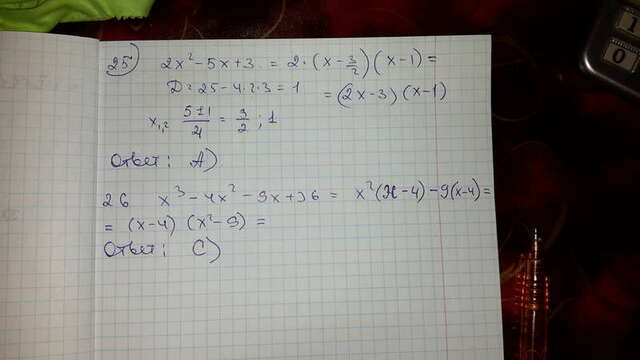 25) 2x² - 5x + 3 = 2·(x - 3/2)(x - 1) =
D = 25 - 4·2·3 = 1 = (2x - 3)(x - 1)
x₁,₂ = (5 ± 1)/4 = 3/2 ; 1
Ответ: A)
26 x³ - 4x² - 9x + 36 = x²(x - 4) - 9(x - 4) =
= (x - 4)(x² - 9) =
Ответ: C)
1
0